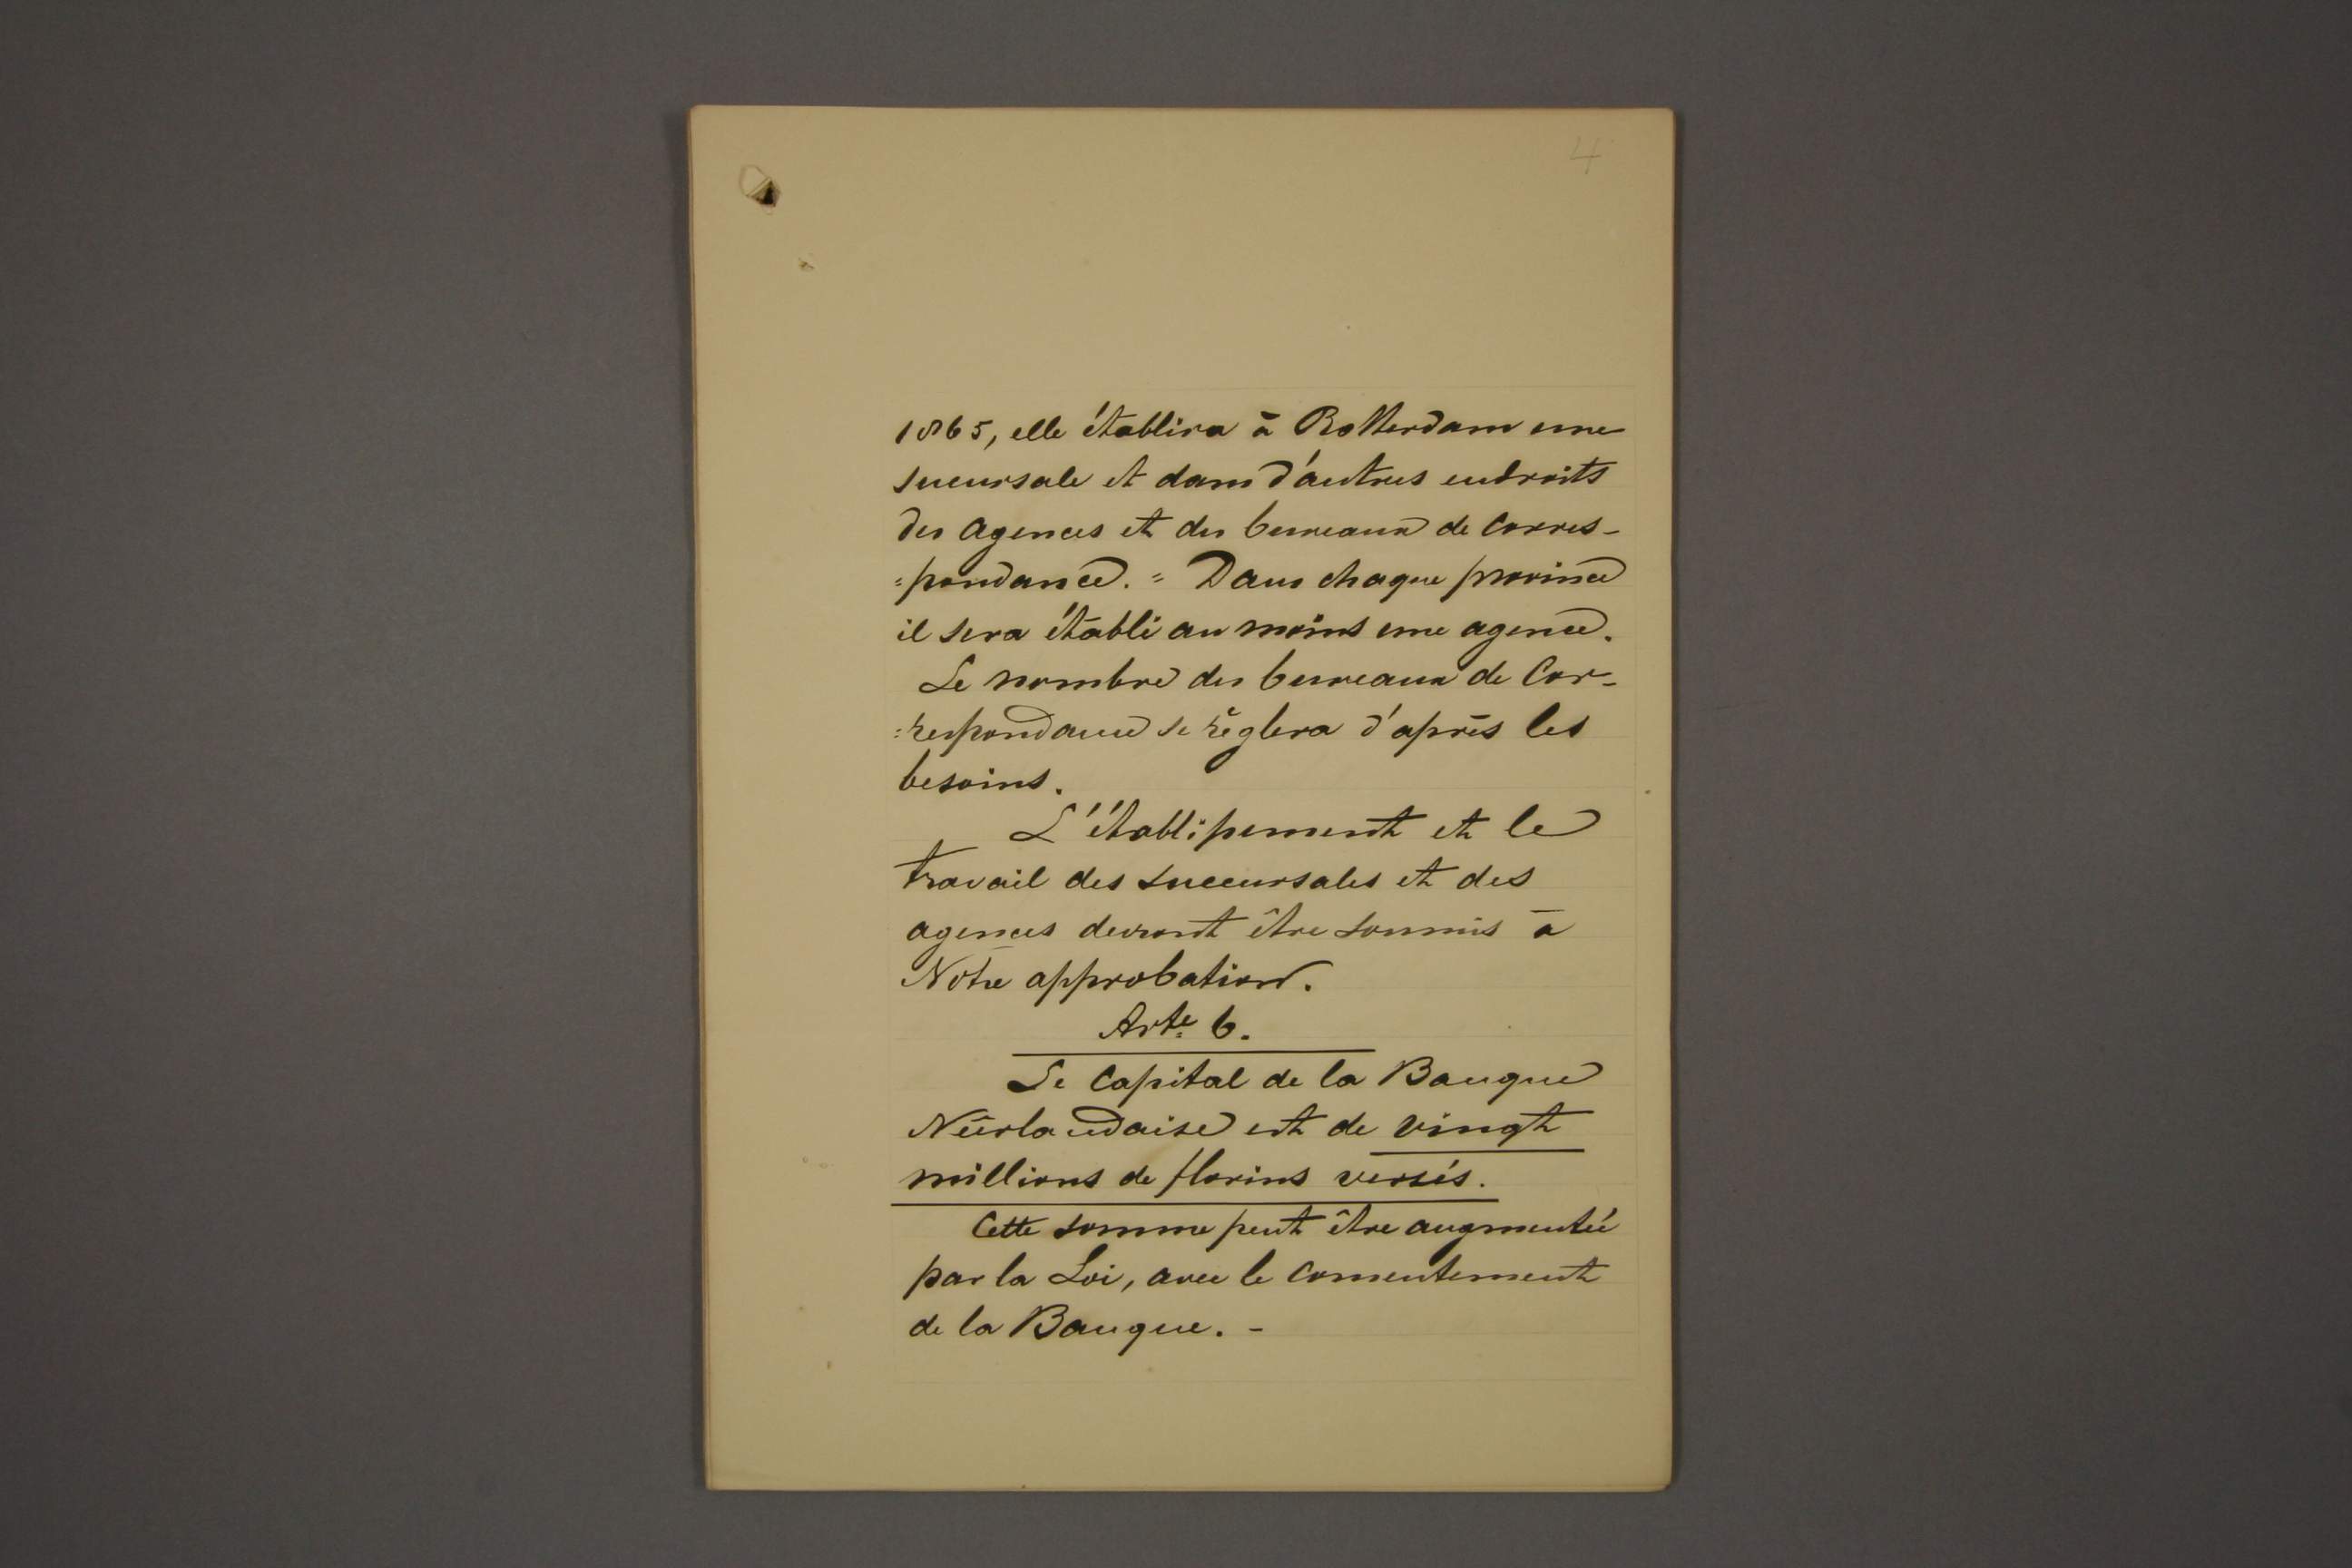 4
1865, elle établira à Rotterdam une
sucursale et dans d'autres endroits
des agences et des bureaux de Corres-
=pondance. = Dans chaque province
il sera établi au moins une agence.
Le nombre des bureaux de Cor-
=respondance se règlera d'après les
besoins.
L'établissement et le
travail des succursales et des
agences devront être soumis à
Notre approbation.
Arte 6.
Le Capital de la Banque
Néerlandaise est de vingt
millions de florins versés.
Cette somme peut être augmentée
par la Loi, avec le Consentement
de la Banque. -